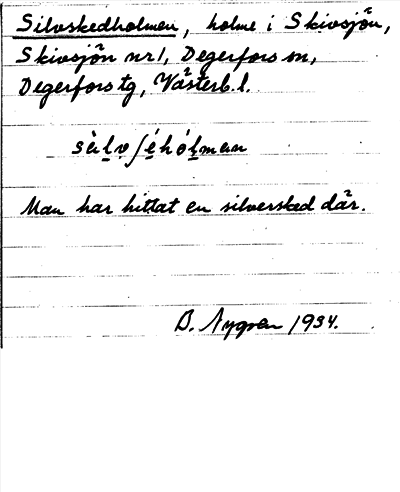 Silvskedholmen, holme i Skivsjön,
Skivsjön nr 1, Degerfors sn,
Degerfors tg, Västerb. l.
Man har hittat en silversked där.
B. Nygren 1934.